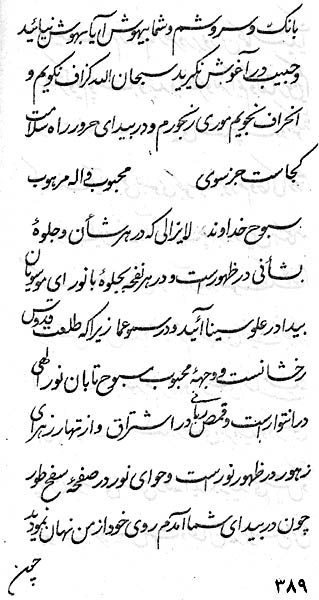 بانک و سروشم و شما بیهوش آیا بهوش نیائید
و حبیب در آغوش نگیرید سبحان الله گزاف نگویم و
انحراف نجویم موری رنجورم و در بیدای حرور راه سلامت
کجاست جز سوی محبوب و اله مرهوب
سبوح خداوند لایزالی که در هر شأن و جلوهٔ
بشأنی در ظهور است و در هر نفحه بجلوهٔ با نور ای موسویان
بیدا در علو سینا آئید و در سمو عما زیرا که طلعت قدوس
رخشانست و وجههٔ محبوب سبوح تابان نور الهی
در انتوار است و قمص ربانی در اشتراق و از تنهار زهرای
زهور در ظهور نور است و حوای نور در صفحهٔ سفح طور
چون در بیدای شما آمدم روی خود از من نهان نمودید
چون
۳۸۹